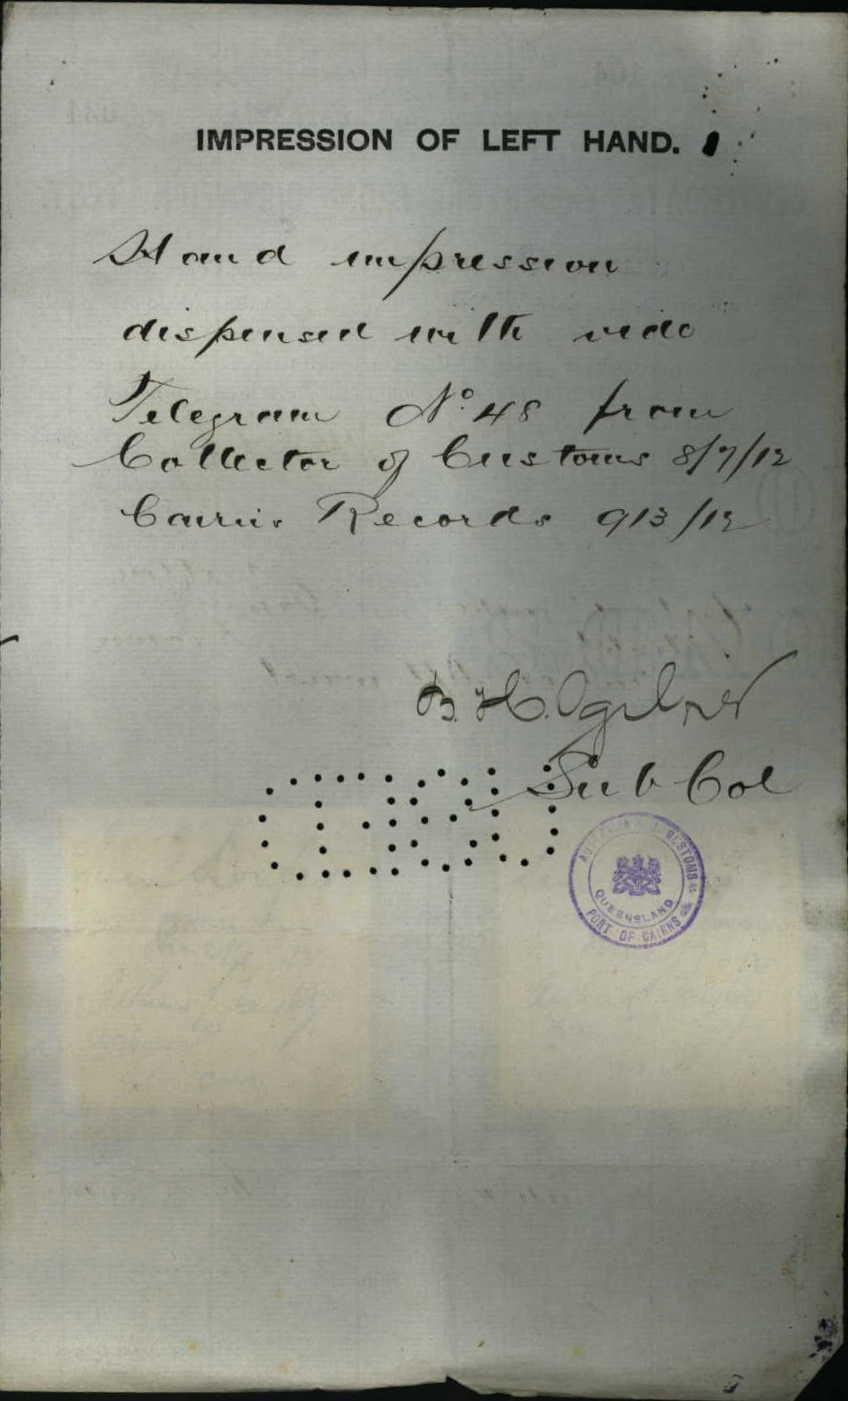 IMPRESSION OF LEFT HAND.
Hand impression
dispensed with vide
Telegram No. 48 from
Collector of Customs 8/7/12
Cairns Records 913/12
B. H. Ogilvie
Sub Col
CUSTOMS
QUEENSLAND
PORT OF CAIRNS